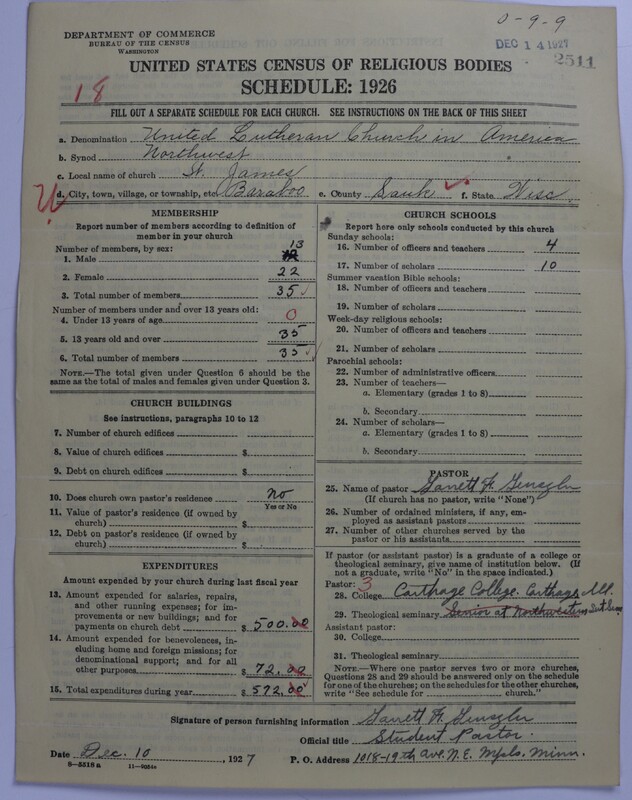 0-9-9
DEPARTMENT OF COMMERCE
BUREAU OF THE CENSUS
WASHINGTON
DEC 14 1927
2511
UNITED STATES CENSUS OF RELIGIOUS BODIES
SCHEDULE: 1926
18
FILL OUT A SEPARATE SCHEDULE FOR EACH CHURCH. SEE INSTRUCTIONS ON THE BACK OF THIS SHEET
a. Denomination United Lutheran Church in America
b. Synod Northwest
c. Local name of church St. James
d. City, town, village, or township, etc. Baraboo e. County Sauk f. State Wisc.
MEMBERSHIP
Report number of members according to definition of member in your church
Number of members, by sex:
1. Male 13
2. Female 22
3. Total number of members 35
Number of members under and over 13 years old:
4. Under 13 years of age 0
5. 13 years old and over 35
6. Total number of members 35
NOTE.—The total given under Question 6 should be the same as the total of males and females given under Question 3.
CHURCH BUILDINGS
See instructions, paragraphs 10 to 12
7. Number of church edifices
8. Value of church edifices $
9. Debt on church edifices $
10. Does church own pastor's residence No
Yes or No
11. Value of pastor's residence (if owned by church) $
12. Debt on pastor's residence (if owned by church) $
EXPENDITURES
Amount expended by your church during last fiscal year
13. Amount expended for salaries, repairs, and other running expenses; for improvements or new buildings; and for payments on church debt $ 500.00
14. Amount expended for benevolences, including home and foreign missions; for denominational support; and for all other purposes $ 72.00
15. Total expenditures during year $ 572.00
CHURCH SCHOOLS
Report here only schools conducted by this church
Sunday schools:
16. Number of officers and teachers 4
17. Number of scholars 10
Summer vacation Bible schools:
18. Number of officers and teachers
19. Number of scholars
Week-day religious schools:
20. Number of officers and teachers
21. Number of scholars
Parochial schools:
22. Number of administrative officers
23. Number of teachers—
a. Elementary (grades 1 to 8)
b. Secondary
24. Number of scholars—
a. Elementary (grades 1 to 8)
b. Secondary
PASTOR
25. Name of pastor Garrett F. Genszler
(If church has no pastor, write "None")
26. Number of ordained ministers, if any, employed as assistant pastors
27. Number of other churches served by the pastor or his assistants
If pastor (or assistant pastor) is a graduate of a college or theological seminary, give name of institution below. (If not a graduate, write "No" in the space indicated.)
Pastor: 3
28. College Carthage College, Carthage, Ill.
29. Theological seminary Senior at Northwestern Sem
Assistant pastor:
30. College
31. Theological seminary
NOTE.—Where one pastor serves two or more churches, Questions 28 and 29 should be answered only on the schedule for one of the churches; on the schedules for the other churches, write "See schedule for church."
Signature of person furnishing information Garrett F. Genszler
Official title Student Pastor.
Date Dec. 10, 1927 P. O. Address 1018-19th Ave. N.E. Mpls. Minn.
8-5518a 11-9664